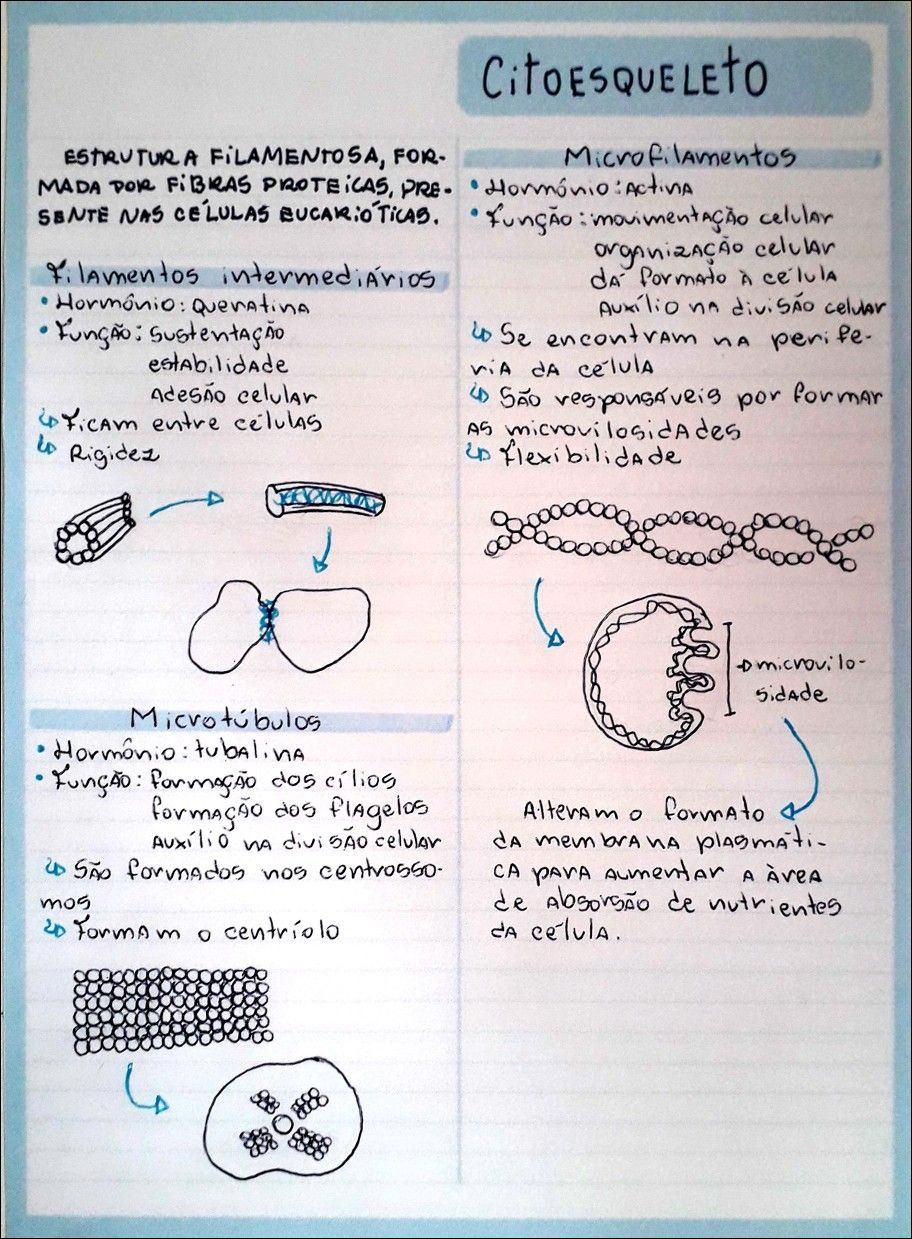 Citoesqueleto
Estrutura filamentosa, for-
mada por fibras proteicas, pre-
sente nas células eucarióticas.
Filamentos intermediários
• Hormônio: Queratina
• Função: Sustentação
estabilidade
Adesão celular
↳ Ficam entre células
↳ Rigidez
Microtúbulos
• Hormônio: tubalina
• Função: formação dos cílios
formação dos flagelos
Auxílio na divisão celular
↳ São formados nos centrosso-
mos
↳ Formam o centríolo
Microfilamentos
• Hormônio: Actina
• Função: movimentação celular
organização celular
dá formato à célula
Auxílio na divisão celular
↳ Se encontram na perife-
ria da célula
↳ São responsáveis por formar
as microvilosidades
↳ flexibilidade
microvilo-
sidade
Alteram o formato
da membrana plasmáti-
ca para aumentar a àrea
de absorsão de nutrientes
da célula.